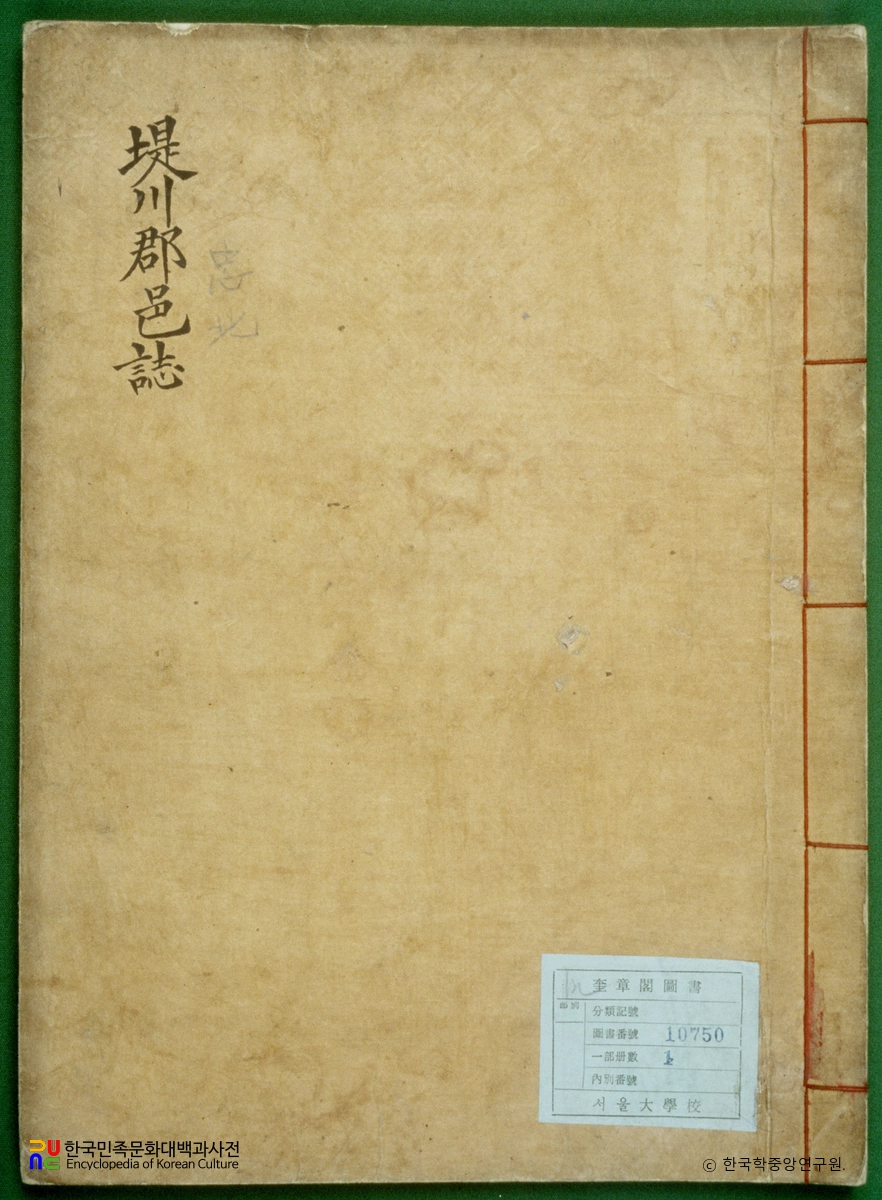 堤川郡邑誌
忠北
奎章閣圖書
部別
分類記號
圖書番號 10750
一部册數 1
內別番號
서울大學校
한국민족문화대백과사전
Encyclopedia of Korean Culture
ⓒ 한국학중앙연구원.